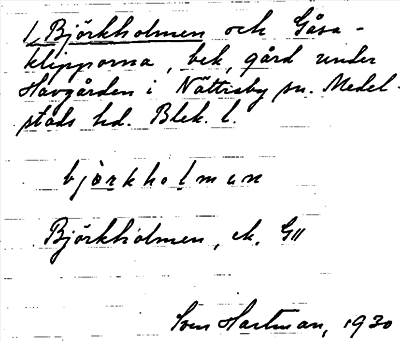 1, Björkholmen och Gåsa-
klipporna, bek. gård under
Havgården i Nättraby sn. Medel-
stads hd. Blek. l.
björkholmən
Björkholmen, ek. G11
Sven Hartman, 1930